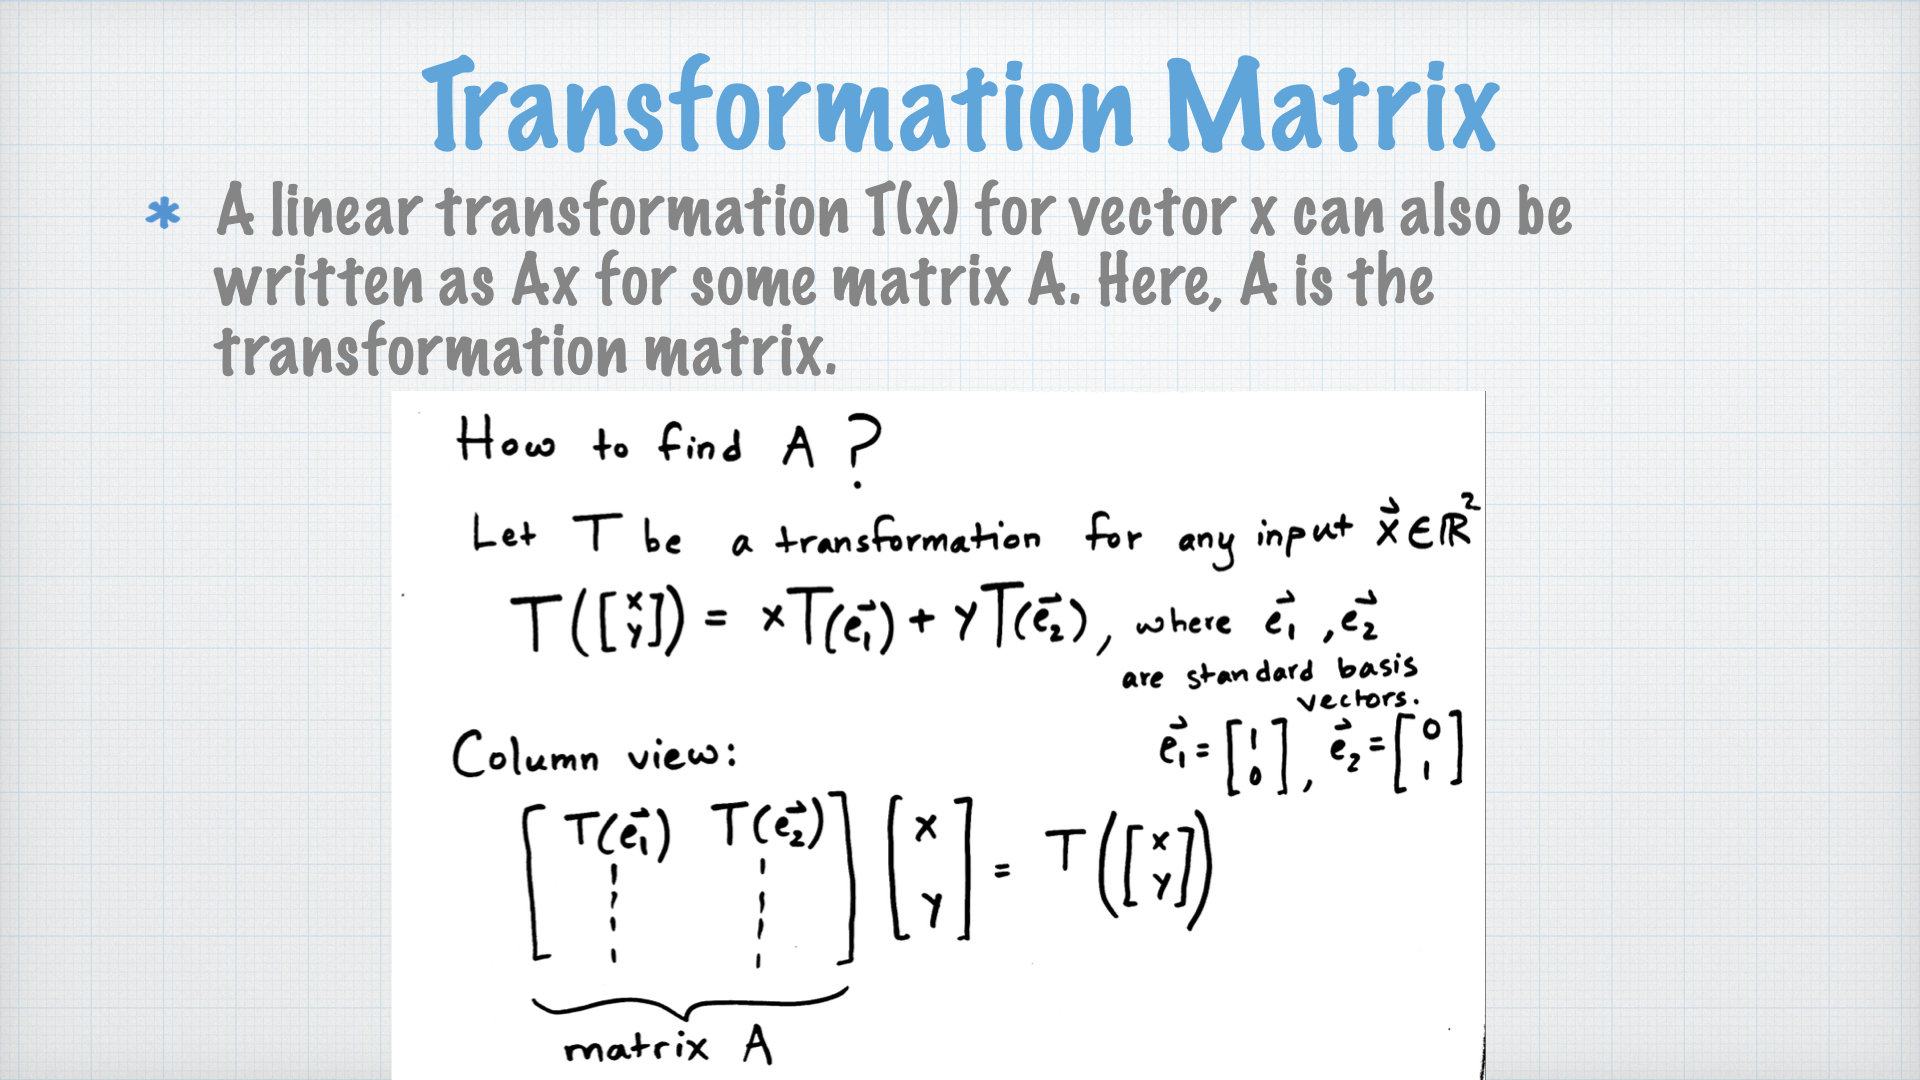 Transformation Matrix
* A linear transformation T(x) for vector x can also be
written as Ax for some matrix A. Here, A is the
transformation matrix.
How to find A ?
Let T be a transformation for any input x⃗ ∈ ℝ²
T([x y]) = xT(e⃗₁) + yT(e⃗₂), where e⃗₁, e⃗₂
are standard basis
vectors.
e⃗₁ = [1 0], e⃗₂ = [0 1]
Column view:
[T(e⃗₁) T(e⃗₂)] [x y] = T([x y])
matrix A